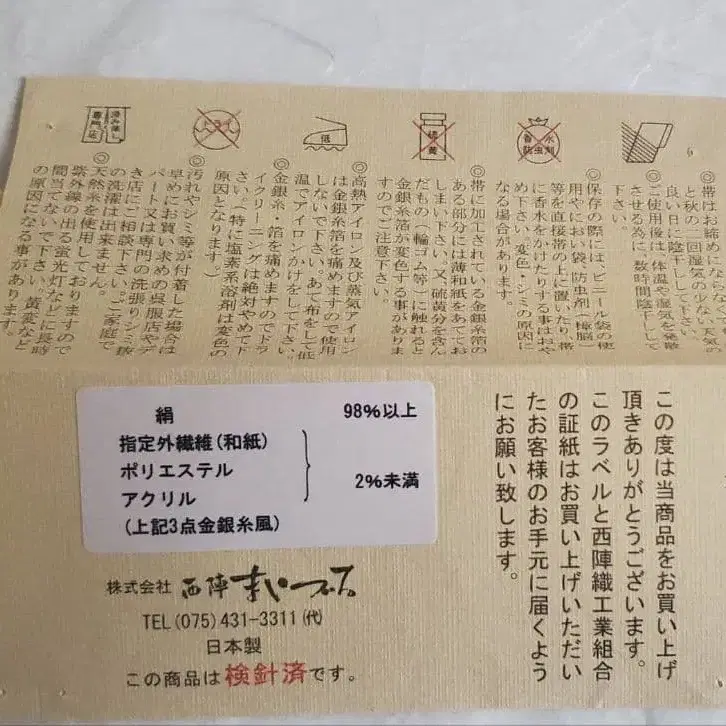 ◎帯はお締めにならなくても春
と秋の二回湿気の少ない、天気の
良い日に陰干しして下さい。
◎ご使用後は、体温や湿気を発散
させる為に、数時間陰干しして
下さい。
◎保存の際には、ビニール袋の使
用やにおい袋、防虫剤(樟脳)
等を直接帯の上に置いたり、帯
に香水をかけたりする事はおや
め下さい。変色、シミの原因に
なる場合があります。
◎帯に加工されている金銀糸箔の
ある部分には薄和紙をあててお
しまい下さい。又、硫黄分を含ん
だもの(輪ゴム等)に触れると
金銀糸箔が変色する事がありま
すのでご注意下さい。
◎高熱アイロン及び蒸気アイロン
は金銀糸箔を痛めますので使用
しないで下さい。あて布をして低
温でアイロンかけをして下さい。
◎金銀糸・箔を痛めますのでドラ
イクリーニングは絶対やめて下
さい。(特に塩素系溶剤は変色の
原因となります。)
◎汚れやシミ等が付着した場合は
早めにお買い求めの呉服店やデ
パート又は専門の洗張りシミ抜
き店にご相談下さい。ご家庭で
の洗濯は出来ません。
◎天然糸を使用しておりますので
紫外線の出る蛍光灯などに長時
間当てないで下さい。黄変など
の原因になる事があります。
香水
防虫剤
硫黄
低
ドライ
染み抜き
専門店
この度は当商品をお買い上げ
頂きありがとうございます。
このラベルと西陣織工業組合
の証紙はお買い上げいただい
たお客様のお手元に届くよう
にお願い致します。
絹 98%以上
指定外繊維(和紙)
ポリエステル
アクリル
2%未満
(上記3点金銀糸風)
株式会社 西陣まいづる
TEL(075)431-3311(代)
日本製
この商品は検針済です。